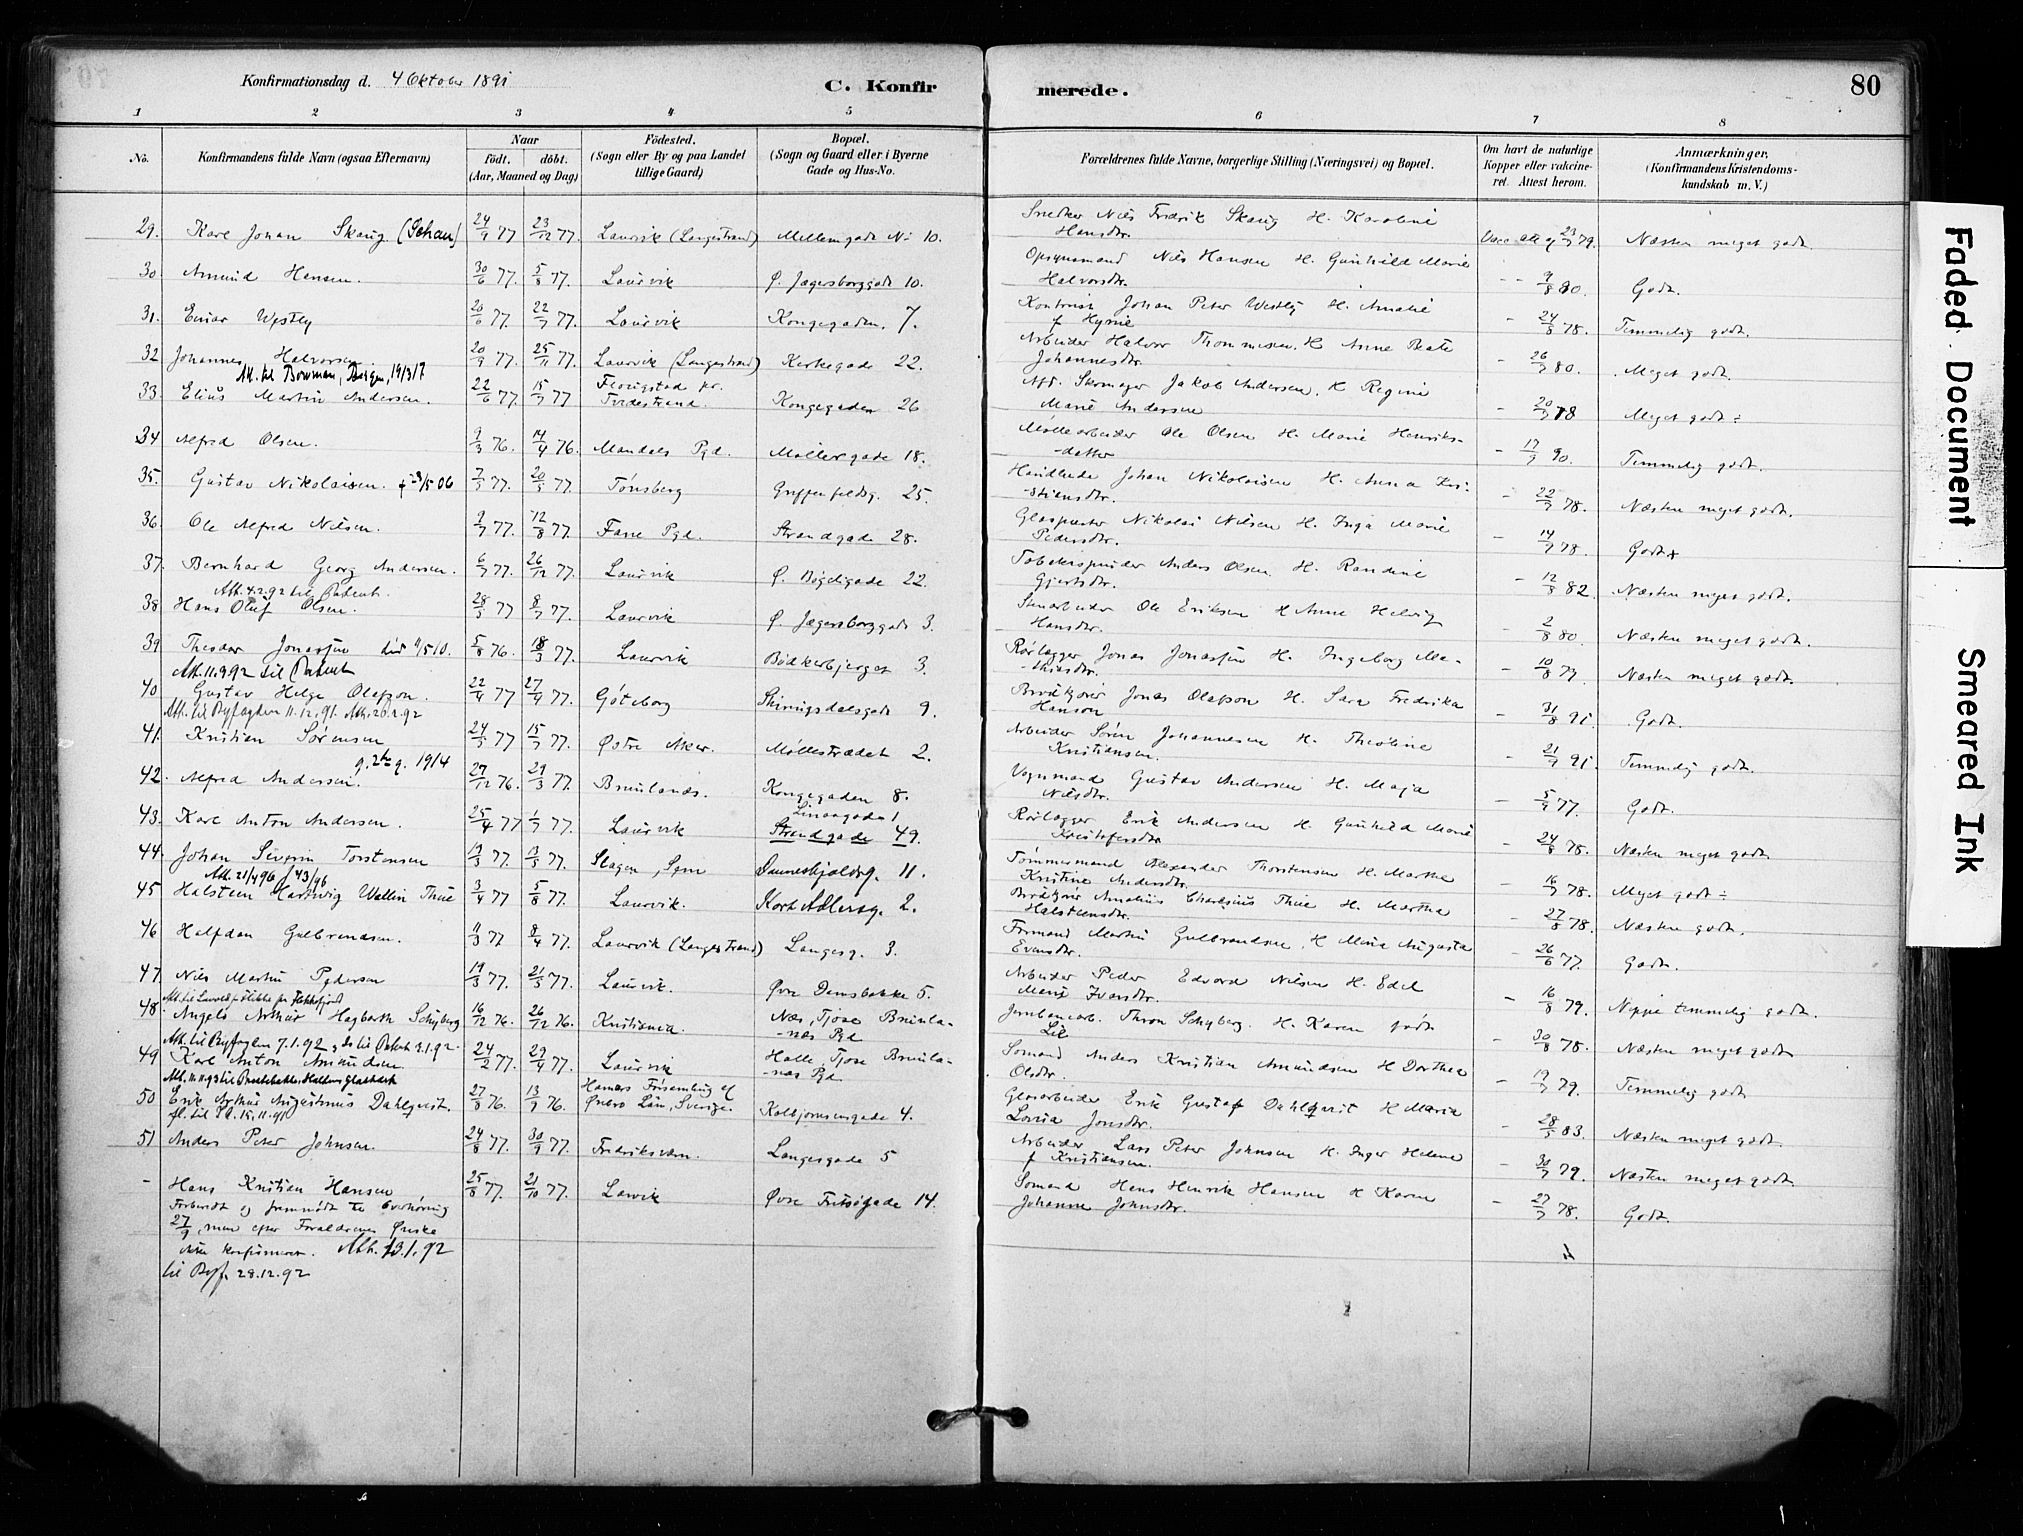 Konfirmationsdag d. 4 Oktober 1891
C. Konfirmerede.
80
1 2 3 4 5 6 7 8
No. Konfirmandens fulde Navn (ogsaa Efternavn) Naar födt. döbt. (Aar, Maaned og Dag) Födested. (Sogn eller By og paa Landet tillige Gaard) Bopæl. (Sogn og Gaard eller i Byerne Gade og Hus-No. Forældrenes fulde Navne, borgerlige Stilling (Næringsvei) og Bopæl. Om havt de naturlige Kopper eller vakcineret. Attest herom. Anmærkninger, (Konfirmandens Kristendomskundskab m. V.)
29. Karl Johan Skaug 24/9 77 23/12 77. Laurvik (Langestrand) Mellemgade No 10. Snedker Nils Fredrik Skaug H. Karoline Hansdtr. 79. Næsten meget godt.
30 Amund Hansen. 30/6 77. 5/8 77. Laurvik Ø. Jegersborggade 10. Opsynsmand Nils Hansen H. Gunhild Marie Halvorsdtr. 9/8 80. Godt.
31. Einar Westby 20/6 77. 22/7 77. Laurvik Kongegaden. 7. Kontorist Johan Peter Westby H. Amalie f Hymne 24/8 78. Temmelig godt.
32 Johannes Halvorsen 20/9 77. 25/11 77. Laurvik (Langestrand) Kirkegade 22. Arbeider Halvor Thommesen. H. Anne Beate Johannesdtr. 26/7 80. Meget godt.
Att. til Bowman, Bergen, 19/3 17
33. Elius Martin Andersen. 22/6 77. 15/7 77 Tvedestrand. Kongegaden 26 Afd. Skomager Jakob Andersen. H. Regine Marie Andersen 20/7 78 Meget godt ÷
34 Alfred Olsen. 9/3 76. 14/4 76. Mandals Pgd. Møllergade 18. Møllearbeider Ole Olsen H. Marie Henriksdatter 17/7 90. Temmelig godt.
35. Gustav Nikolaisen. 7/3 77. 20/5 77. Tønsberg Griffenfeldsg. 25. Johan Nikolaisen H. Anna Kristiansdtr. 22/7 78. Næsten meget godt.
36. Ole Alfred Nilsen. 2/7 77. 12/8 77. Fane Pgd. Strandgade 28. Glaspuster Nikolai Nilsen H. Inga Marie Pedersdtr. 14/7 78. Godt
37. Bernhard Georg Andersen. 6/7 77. 26/12 77. Laurvik Ø. Bøgeligade 22. Tobakspinder Anders Olsen. H. Randine Gjertsdtr. 12/8 82. Næsten meget godt.
Att. 4.2.92 til Patent.
38 Hans Oluf Olsen. 28/5 77 8/7 77. Laurvik Ø. Jegersborggade 3. Stenarbeider Ole Eriksen H Anne Helvig Hansdtr. 2/8 80 Næsten meget godt.
39 Theodor Jonassen 11/5 10. 5/8 76. 18/3 77. Laurvik Bødkerbjerget 3. Rørlægger Jonas Jonassen H. Ingeborg Mathiasdtr. 10/8 77. Næsten meget godt.
Att. 11.9.92 til Patent
40 Gustav Helge Olafson. 22/4 77 27/4 77. Göteborg Skiringsdalsgade 9. Jonas Olafson H. Sara Fredrika Hanson 31/8 91 Godt.
Att. til Byfogden 11.12.91.
41. Kristian Sørensen 24/5 77 15/7 77. Østre Aker. Møllestrædet 2. Arbeider Søren Johannesen H. Theoline Kristiansen. 21/9 91. Temmelig godt.
1914
42. Alfred Andersen. 27/12 76. 29/3 77. Brunlanæs. Kongegaden 8. Vognmand Gustav Andersen H. Maja Nilsdtr. 5/9 77. Godt.
43. Karl Anton Andersen. 25/4 77 1/7 77. Laurvik Strandgade 49. Rørlægger Erik Andersen H. Gunhild Marie Kristofersdtr. 24/8 78. Næsten meget godt.
44. Johan Severin Torstensen 19/3 77. 13/5 77. Slagen Sgn Danneskjoldsg. 11. Tømmermand Alexander Thorstensen H. Marthe Kristine Andersdtr. 16/7 78. Meget godt ÷
Att. 21/4 96
45 Halsteen Hartvig Wallin Thue 3/4 77 5/8 77. Laurvik. Kort Adlersg. 2. Amalius Thue H. Martha Halsteensdtr. 27/8 78. Næsten godt.
46 Halfdan Gulbrandsen. 11/3 77 8/4 77. Laurvik (Langestrand) Langesg. 3. Formand Martin Gulbrandsen. H Mina Augusta Evensdtr. 26/6 77. Godt.
47. Nils Martin Pedersen 19/3 77. 21/5 77. Laurvik. Øvre Damsbakke 5. Arbeider Peder Edvard Nilsen H. Edel Marie Ivarsdtr. 16/8 79. Neppe temmelig godt.
48. Angelo Arthur Hagbarth Schyberg 16/12 76. 26/12 76. Kristiania. Næs, Tjose Brunlanæs Pgd Jernbanearb. Thron Schyberg. H. Karen født Lie 30/8 78. Næsten meget godt
Att. til Byfogden 7.1.92
49 Karl Anton Amundsen. 24/2 77. 29/4 77. Laurvik Halle, Tjose Brunlanæs Pgd Sømand Anders Kristian Amundsen H Dorthea Olsdtr. 19/7 79. Temmelig godt
50 Erik Arthur Augustinus Dahlqvist. 27/8 76. 13/9 76. Hamars Församling af Örebro Län, Sverige. Kolbjørnsensgade 4. Glasarbeider Erik Gustaf Dahlqvist H Maria Lovisa Jonsdtr. 28/5 83. Næsten meget godt.
51 Anders Peter Johnsen. 24/8 77. 30/9 77. Fredriksværn. Langesgade 5 Arbeider Lars Peter Johnsen H. Inger Helene f Kristiansen. 30/7 79. Næsten meget godt.
- Hans Kristian Hansen 25/8 77. 21/10 77. Larvik Øvre Fritsøgade 14. Sømand Hans Henrik Hansen H Karen Johanne Johnsdtr. 27/7 78. Godt.
Forberedt og fremmødt til Overhøring
27/9, men efter Forældrenes Ønske
ikke konfirmeret. Att. 13.1.92
til Byf. 28.12.92
Faded Document
Smeared Ink